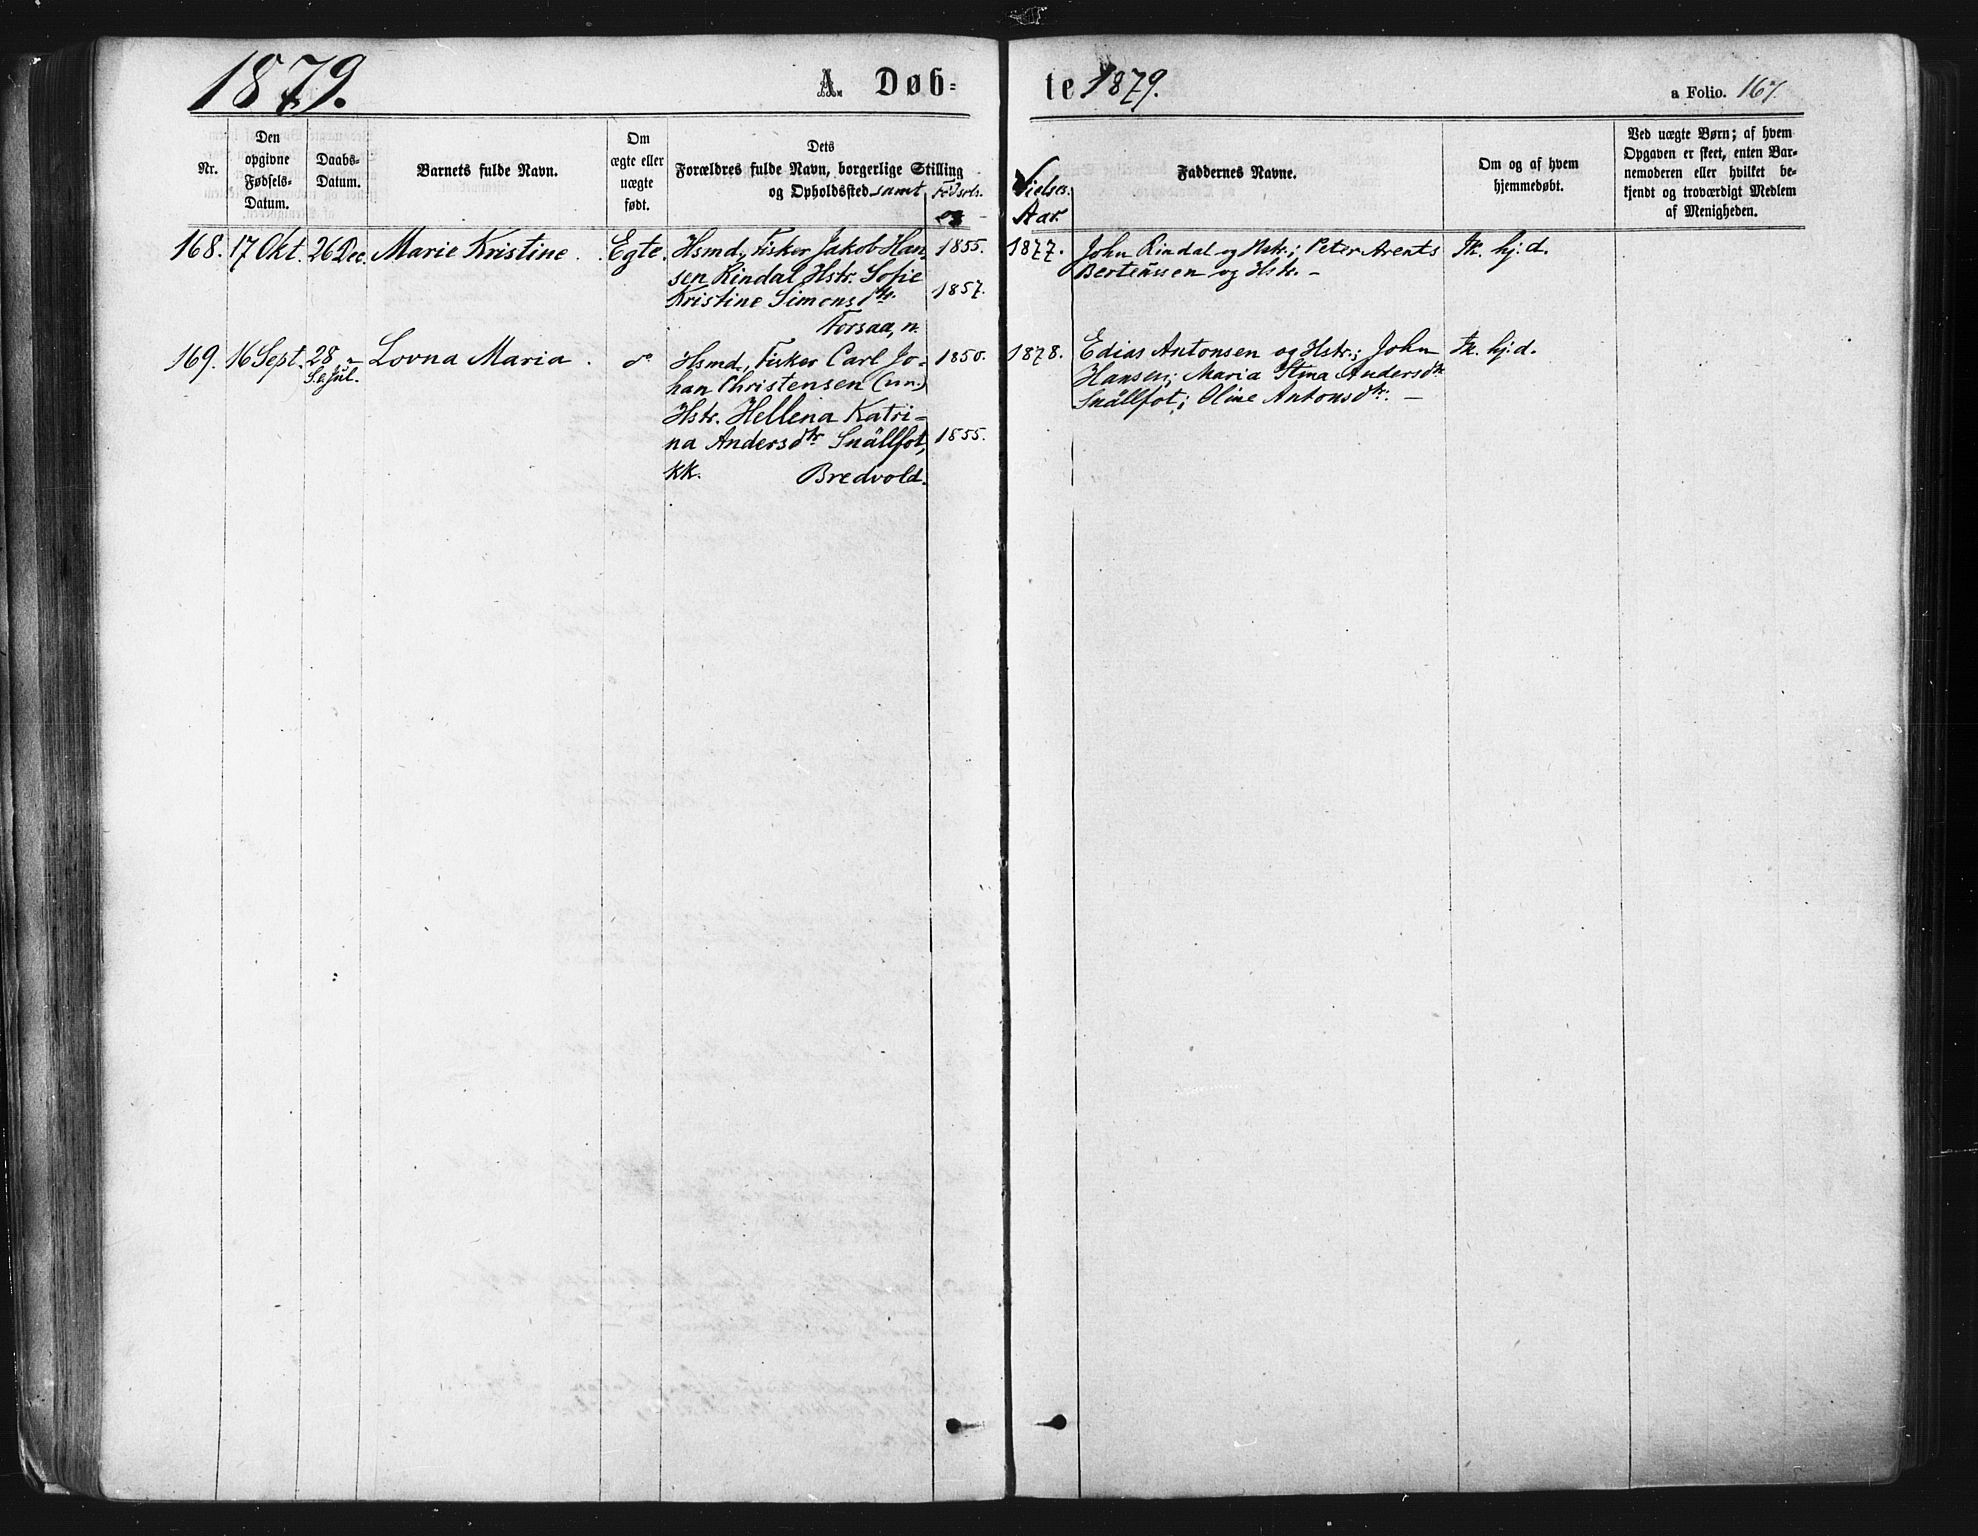 1879. A. Døb= te 1879. a Folio. 167.
Nr.
Den
opgivne
Fødsels-
Datum.
Daabs-
Datum.
Barnets fulde Navn.
Om
ægte eller
uægte
født.
Dets
Forældres fulde Navn, borgerlige Stilling
og Opholdssted samt Fødsels-
og
Vielses
Aar
Faddernes Navne.
Om og af hvem
hjemmedøbt.
Ved uægte Børn; af hvem
Opgaven er skeet, enten Bar-
nemoderen eller hvilket be-
kjendt og troværdigt Medlem
af Menigheden.
168. 17 Okt. 26 Dec. Marie Kristine. Egte. Hsmd., Fisker Jakob Han- 1855. 1877. John Rindal og Hstr.; Peter Arents K. hj.d.
sen Rindal Hstr. Sofie Berteussen og Hstr. -
Kristine Simonsdtr. 1857.
Forsaa, n.
169. 16 Sept. 28 - Lovna Maria. do Hsmd., Fisker Carl Jo- 1850. 1878. Edias Antonsen og Hstr.; John K. hj.d.
S.e.Jul. han Christensen (nn.) Hansen; Maria Stina Andersdtr
Hstr. Hellena Katri- Snällfot; Oline Antonsdtr. -
na Andersdtr Snällfot, 1855.
kk. Bredvold.